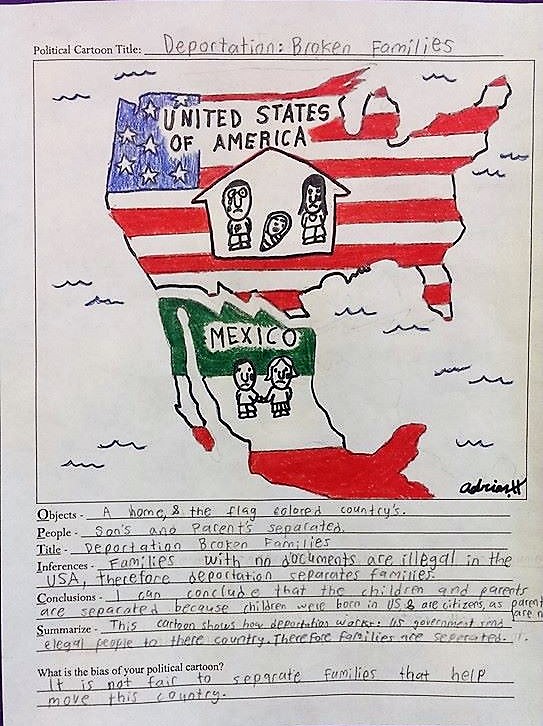 Political Cartoon Title: Deportation: Broken Families
UNITED STATES
OF AMERICA
MEXICO
adrian H
Objects - A home, & the flag colored country's.
People - Son's and Parent's separated.
Title - Deportation Broken Families
Inferences - Families with no documents are illegal in the
USA, therefore deportation separates families.
Conclusions - I can conclude that the children and parents
are separated because children were born in US & are citizens, as parent
are n
Summarize - This cartoon shows how deportation works. US government send
elegal people to there country. Therefore families are seperated.
What is the bias of your political cartoon?
It is not fair to separate families that help
move this country.